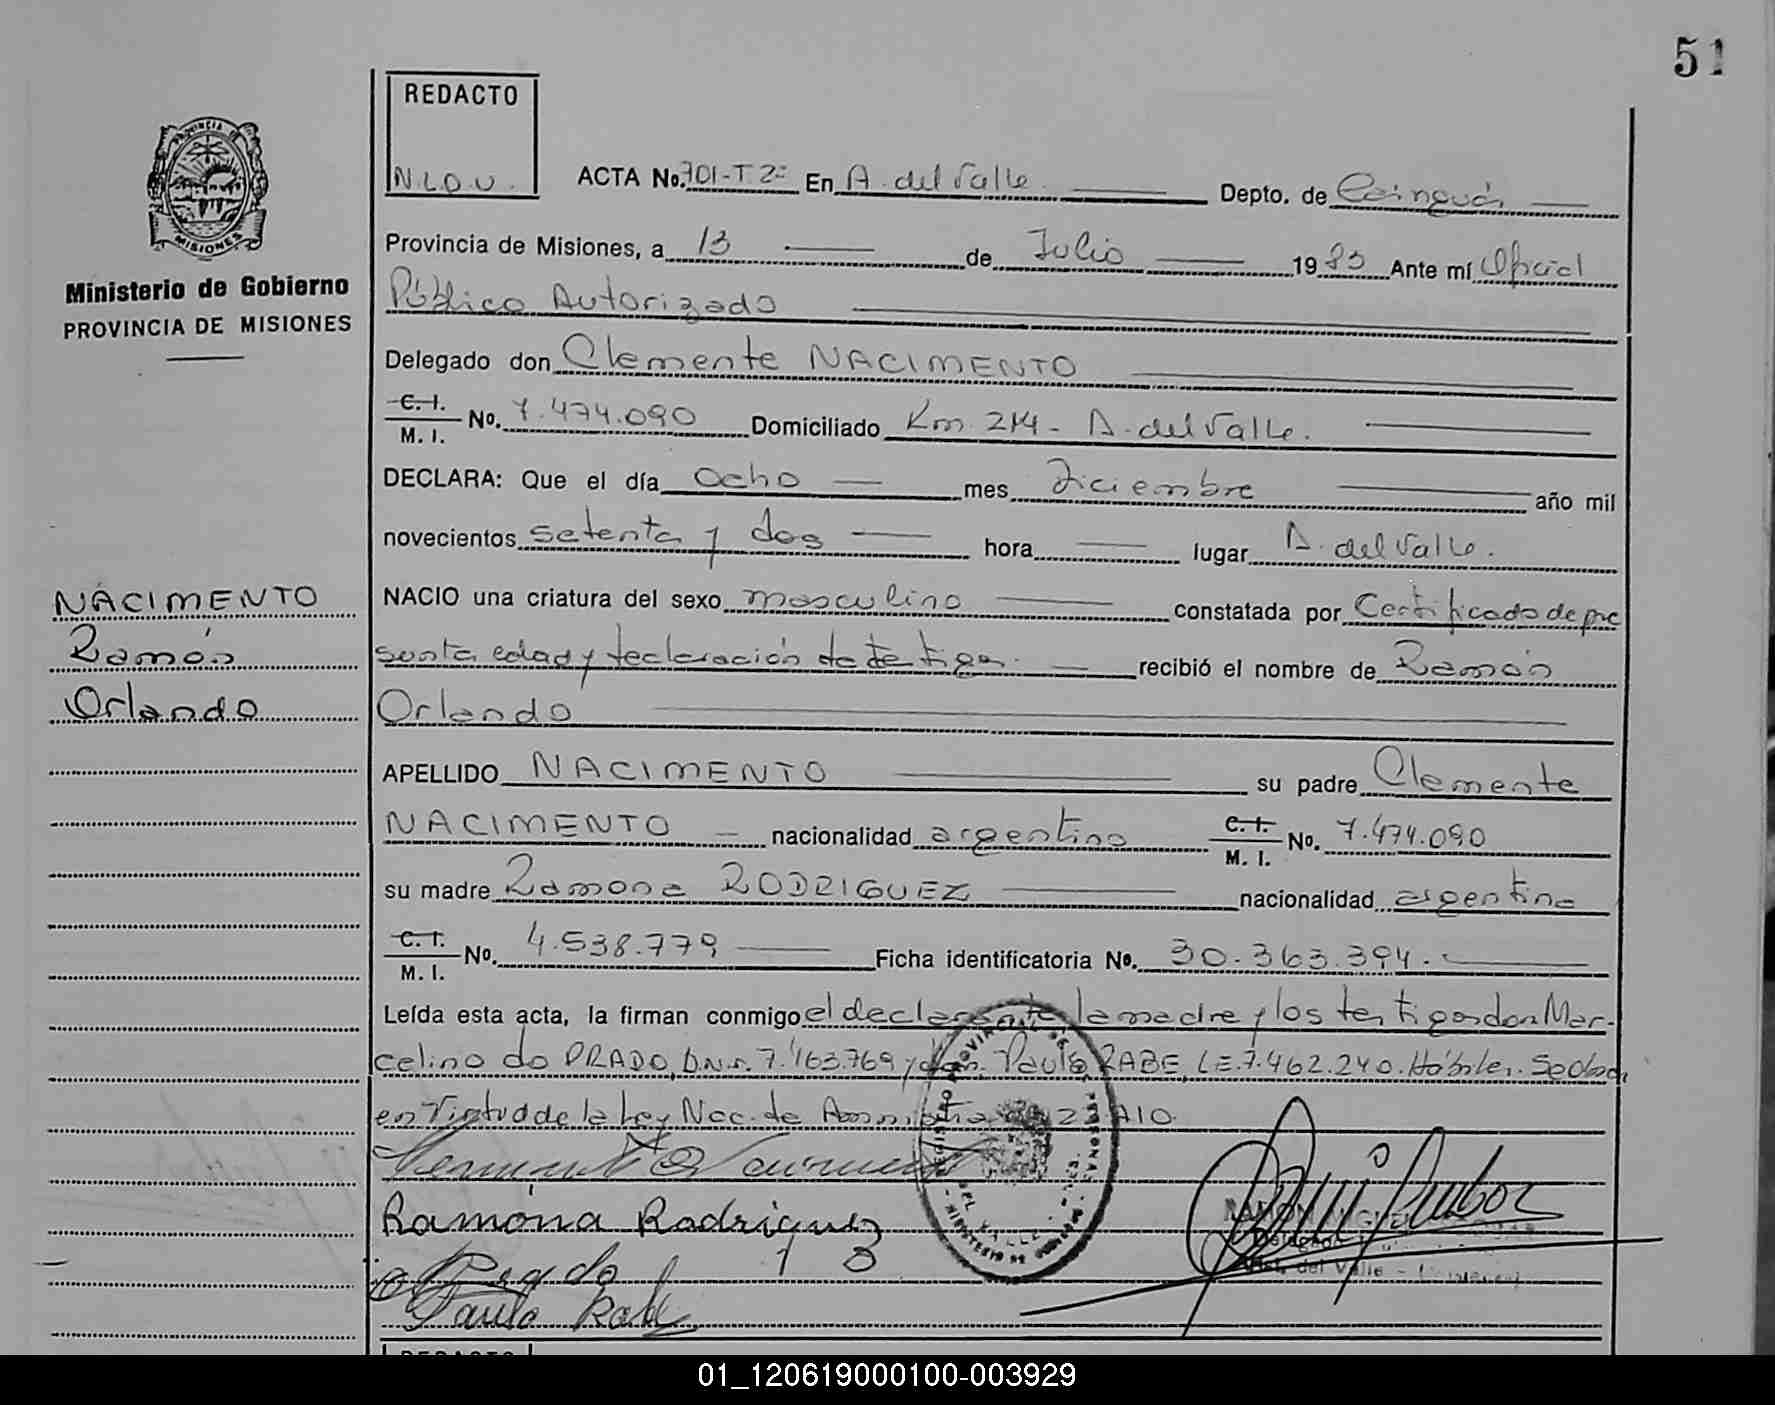 51
REDACTO
N.L.D.U.
PROVINCIA DE
MISIONES
Ministerio de Gobierno
PROVINCIA DE MISIONES
ACTA No. 701-T2º En A. del Valle. Depto. de Cainguás
Provincia de Misiones, a 13 de Julio 1983 Ante mí Oficial
Público Autorizado
Delegado don Clemente NACIMENTO
C. I. M. I. No. 7.474.090 Domiciliado Km. 214 - A. del Valle.
DECLARA: Que el día ocho mes Diciembre año mil
novecientos setenta y dos hora lugar A. del Valle.
NACIMENTO
Ramón
Orlando
NACIO una criatura del sexo masculino constatada por Certificado de pre
sunta edad y declaración de testigos. recibió el nombre de Ramón
Orlando
APELLIDO NACIMENTO su padre Clemente
NACIMENTO nacionalidad argentino C. I. M. I. No. 7.474.090
su madre Ramona RODRIGUEZ nacionalidad argentina
C. I. M. I. No. 4.538.779 Ficha identificatoria No. 30.363.394.-
Leída esta acta, la firman conmigo el declarante la madre y los testigos don Mar-
celino do PRADO, D.N.I. 7.463.769 y don Paulo RABE, L.E. 7.462.240. Hábiles. Se labra
en Virtud de la Ley Nac. de Amnistia 22.410
Ramona Rodriguez
Prado
Paulo Rabe
REDACTO
01_120619000100-003929